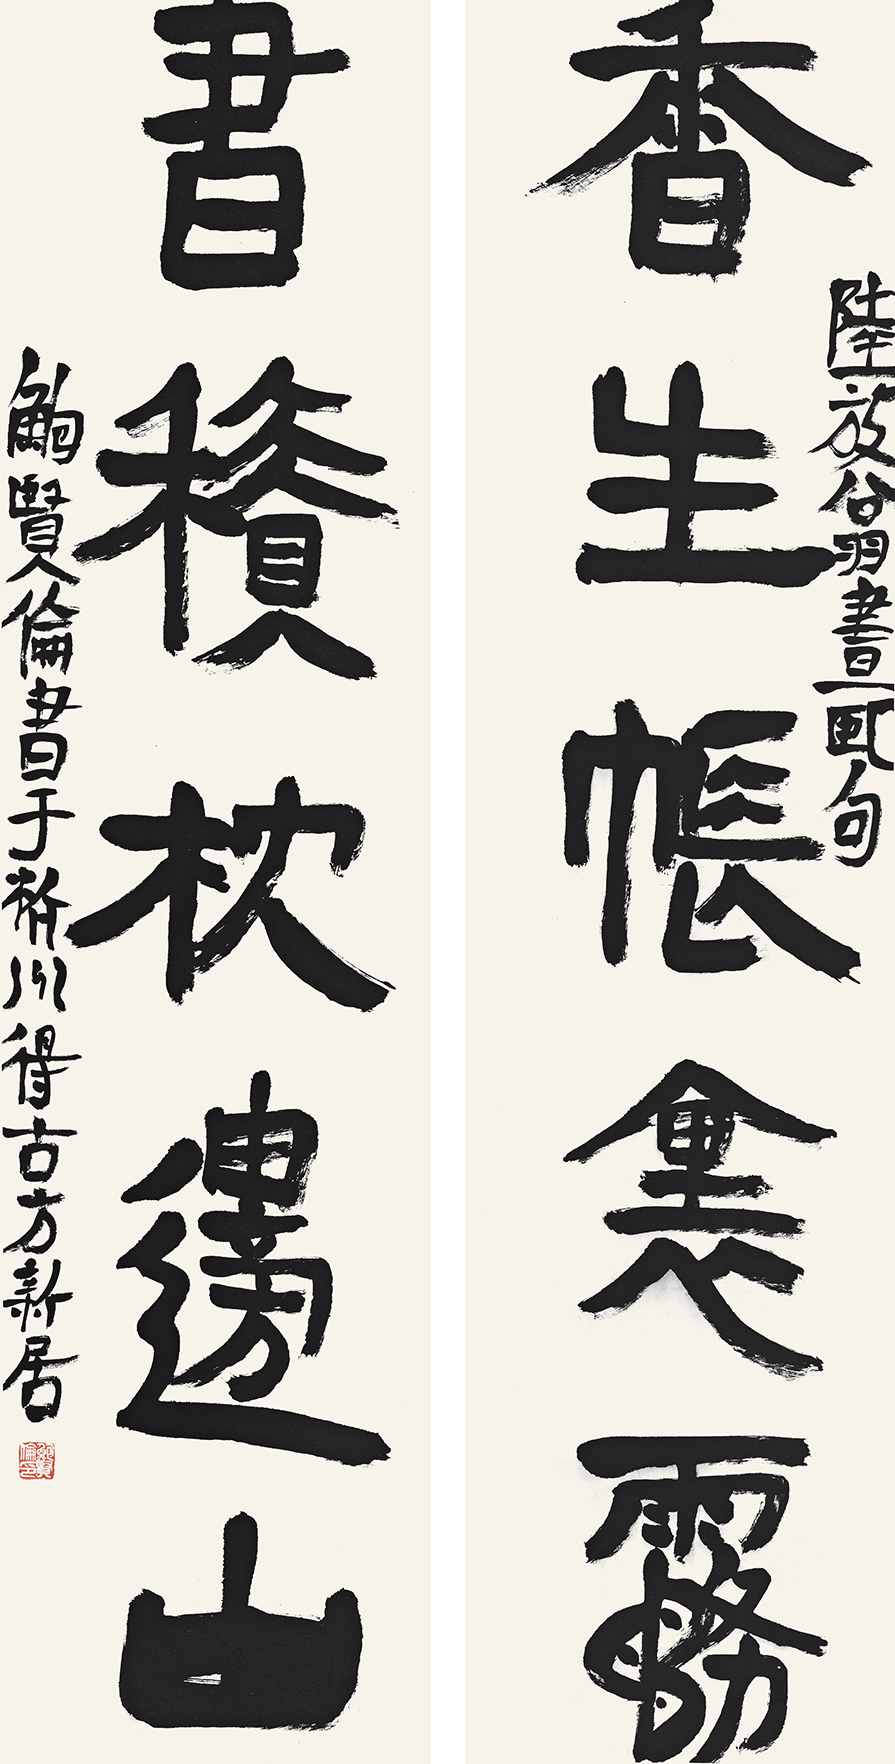 陸放翁晝臥句
香生帳裏霧
書積枕邊山
鮑賢倫書于州得古方新居
鮑賢倫印